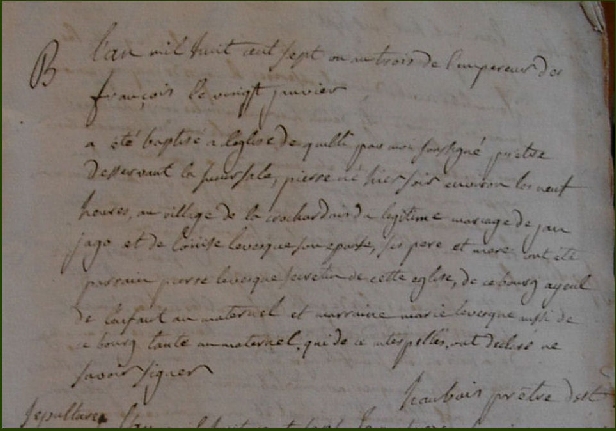 B l'an mil huit cent sept ou an trois de l'empereur des
françois le vingt janvier
a été baptisé a l'eglise de quilli par moi soussigné prêtre
desservant la succursale, pierre né hier soir environ les neuf
heures, au village de la crochardais du legitime mariage de jan
jago et de louise levesque son epouse, ses pere et mere ont été
parrain pierre levesque secretin de cette eglise, de ce bourg ayeul
de l'enfant au maternel et marraine marie levesque aussi de
ce bourg tante au maternel, qui de ce interpellés ont declaré ne
savoir signer
prêtre dest
sepulture l'an mil huit cent sept